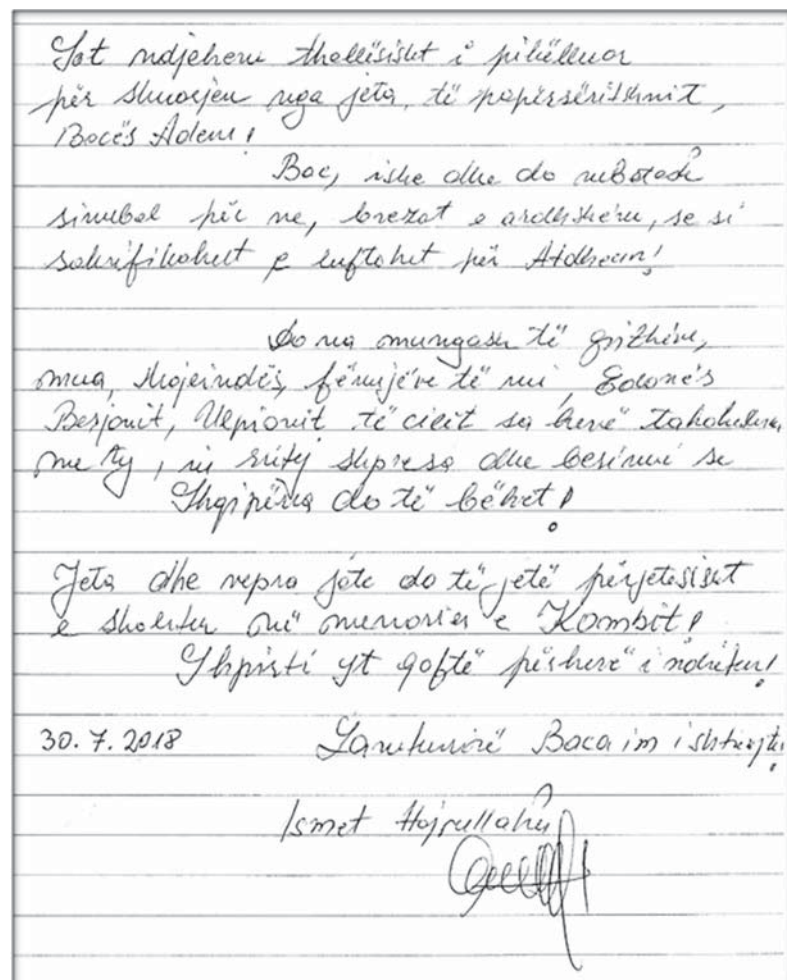 Sot ndjehem thellësisht i pikëlluar
për shuarjen nga jeta, të papërsëritshmit,
Bacës Adem!
Bac, ishe dhe do mbetesh
simbol për ne, brezat e ardhshëm, se si
sakrifikohet e luftohet për Atdheun!
Do na mungosh të gjithëve,
mua, fëmijëve të mi, Edonës
Besjonit, Ulpionit të cilët sa herë takoheshin
me ty, rritej shpresa dhe besimi se
Shqipëria do të bëhet!
Jeta dhe vepra jote do të jetë përjetësisht
e skalitur në memorien e Kombit!
Shpirti yt qoftë përherë i ndritur!
30.7.2018 Lamtumirë Baca im i shtrejtë!
Ismet Hajrullahu